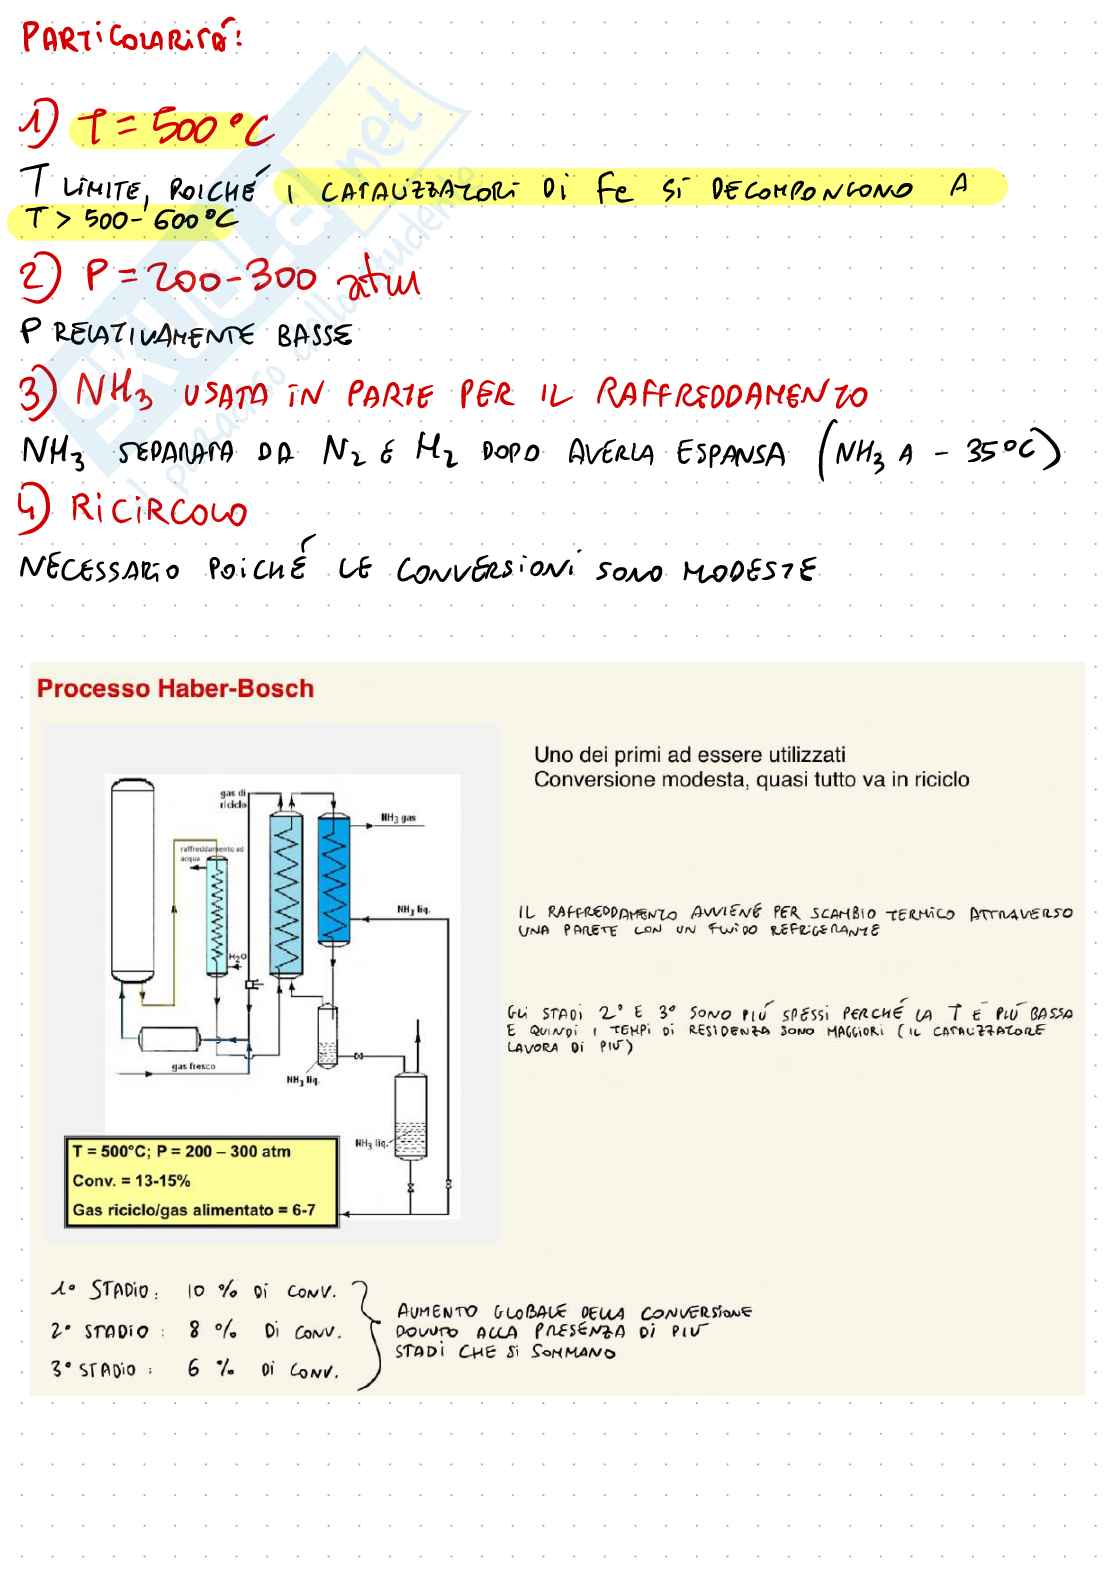 PARTICOLARITÀ:
1) T = 500°C
T LIMITE, POICHÉ I CATALIZZATORI DI Fe SI DECOMPONGONO A
T > 500-600°C
2) P = 200-300 atm
P RELATIVAMENTE BASSE
3) NH3 USATA IN PARTE PER IL RAFFREDDAMENTO
NH3 SEPARATA DA N2 E H2 DOPO AVERLA ESPANSA (NH3 A - 35°C)
4) RICIRCOLO
NECESSARIO POICHÉ LE CONVERSIONI SONO MODESTE
Processo Haber-Bosch
Uno dei primi ad essere utilizzati
Conversione modesta, quasi tutto va in riciclo
gas di
riciclo
NH3 gas
raffreddamento ad
acqua
NH3 liq.
H2O
IL RAFFREDDAMENTO AVVIENE PER SCAMBIO TERMICO ATTRAVERSO
UNA PARETE CON UN FLUIDO REFRIGERANTE
GLI STADI 2° E 3° SONO PIÙ SPESSI PERCHÉ LA T È PIÙ BASSA
E QUINDI I TEMPI DI RESIDENZA SONO MAGGIORI (IL CATALIZZATORE
LAVORA DI PIÙ)
gas fresco
NH3 liq.
NH3 liq.
T = 500°C; P = 200 – 300 atm
Conv. = 13-15%
Gas riciclo/gas alimentato = 6-7
1° STADIO: 10 % DI CONV.
2° STADIO: 8 % DI CONV.
3° STADIO: 6 % DI CONV.
AUMENTO GLOBALE DELLA CONVERSIONE
DOVUTO ALLA PRESENZA DI PIÙ
STADI CHE SI SOMMANO